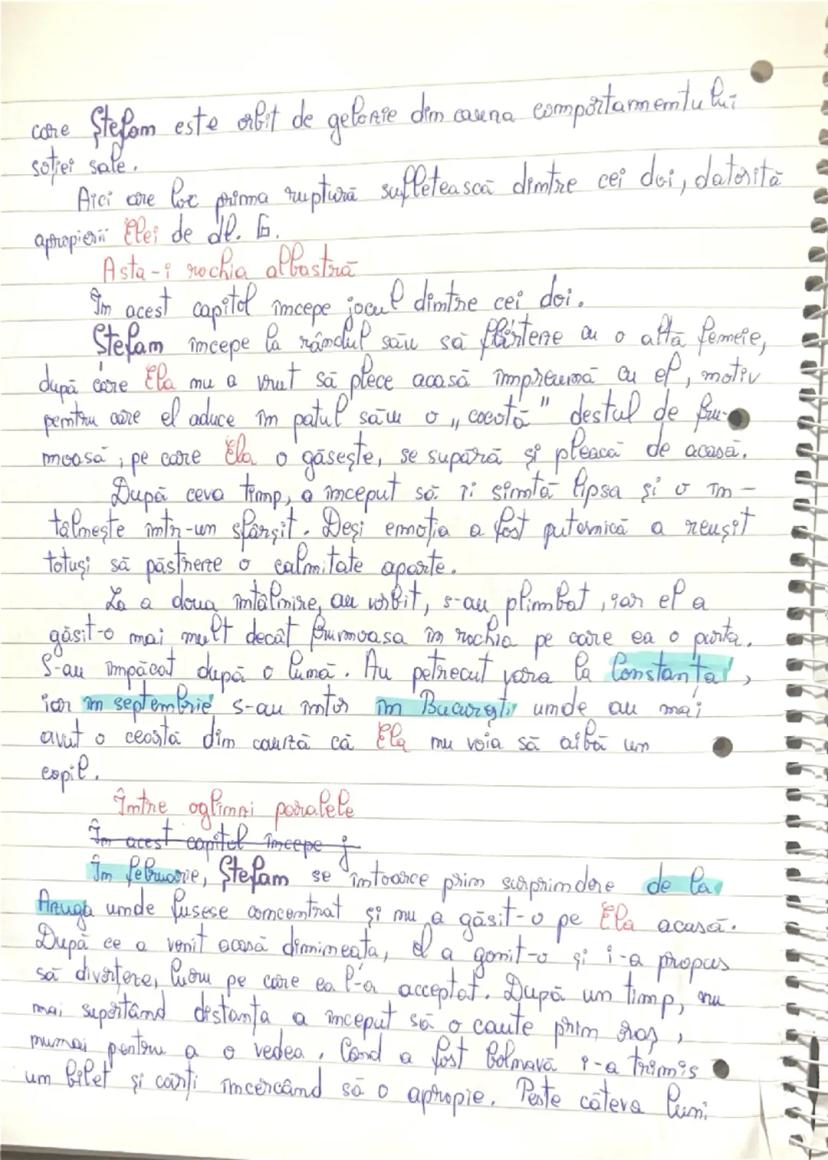 care Ștefan este orbit de gelozie din cauza comportamentului
soției sale.
Aici are loc prima ruptură sufletească dintre cei doi, datorită
apropierii Elei de dl. G.
Asta-i rochia albastră
În acest capitol începe jocul dintre cei doi.
Ștefan începe la rândul său să flirteze cu o altă femeie,
după care Ela nu a vrut să plece acasă împreună cu el, motiv
pentru care el aduce în patul său o „cocotă" destul de fru-
moasă, pe care Ela o găsește, se supără și pleacă de acasă.
După ceva timp, a început să îi simtă lipsa și o în-
tâlnește într-un sfârșit. Deși emoția a fost puternică a reușit
totuși să păstreze o calmitate aparte.
La a doua întâlnire, au vorbit, s-au plimbat, iar el a
găsit-o mai mult decât frumoasă în rochia pe care ea o purta.
S-au împăcat după o lună. Au petrecut vara la Constanța,
iar în septembrie s-au întor în București unde au mai
avut o ceartă din cauză că Ela nu voia să aibă un
copil.
Între oglinzi paralele
În acest capitol începe j
În februarie, Ștefan se întoarce prin surprindere de la
Azuga unde fusese concentrat și nu a găsit-o pe Ela acasă.
După ce a venit acasă dimineața, el a gonit-o și i-a propus
să divorțeze, lucru pe care ea l-a acceptat. După un timp, nu
mai suportând distanța a început să o caute prin oraș,
numai pentru a o vedea. Când a fost bolnavă i-a trimis
un bilet și cărți încercând să o apropie. Peste câteva luni